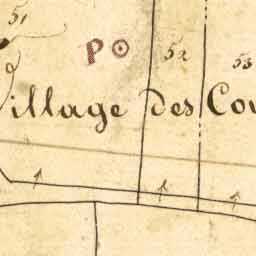 51
P
52
53
Village des Cou